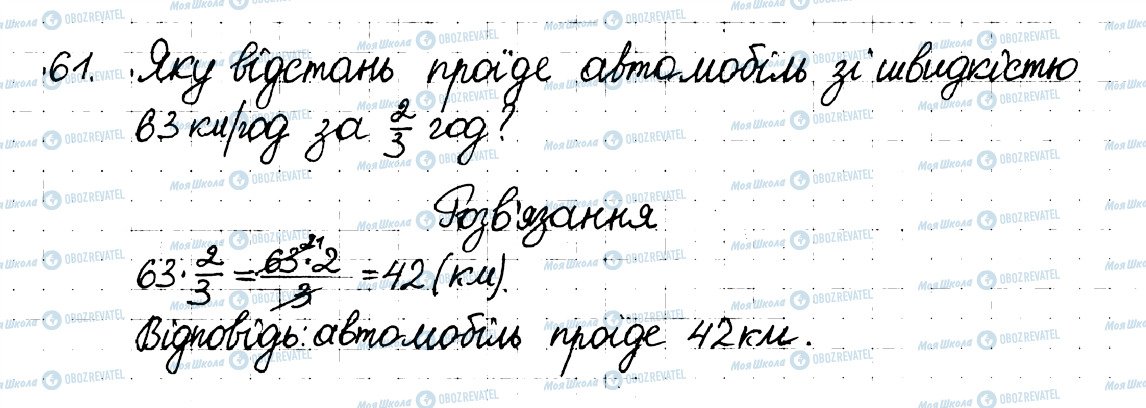 61. Яку відстань проїде автомобіль зі швидкістю
63 км/год за 2/3 год?
Розв'язання
63 · 2/3 = 63²¹·2/3 = 42 (км).
Відповідь: автомобіль проїде 42 км.